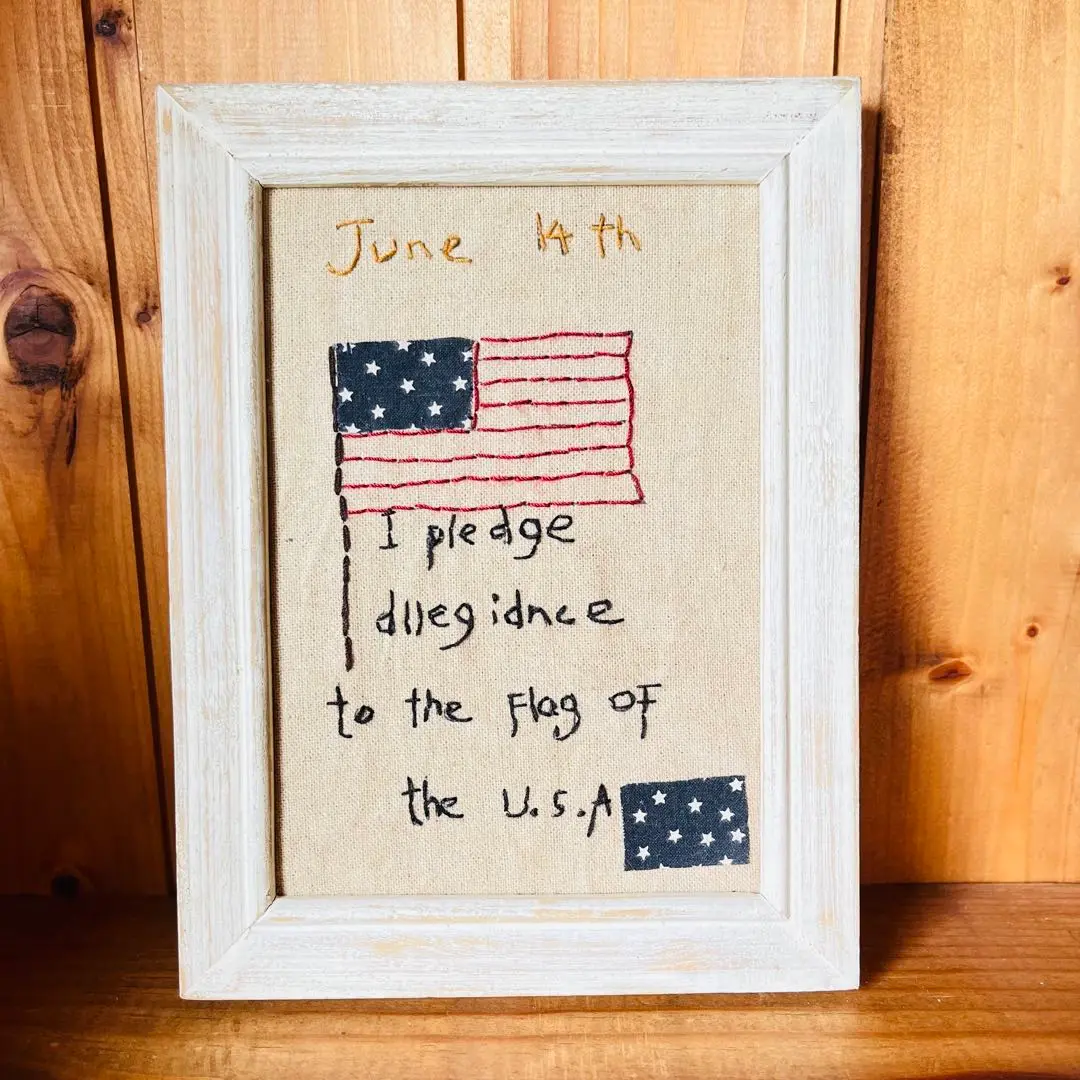 June 14th
I pledge
allegiance
to the Flag of
the U.S.A